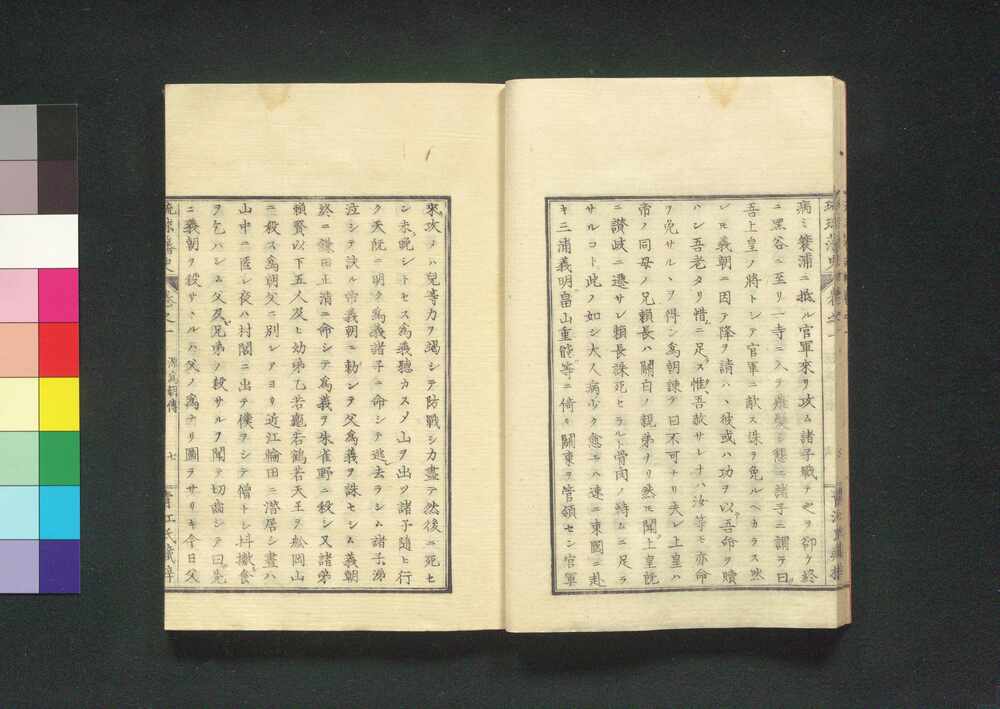 病ミ簑浦ニ抵ル官軍來リ攻ム諸子戰テ之ヲ卻ケ終
ニ黑谷ニ至リ一寺ニ入テ薙髮シ態ニ諸子ニ謂テ曰
吾上皇ノ將トシテ官軍ニ敵ス誅ヲ免ルヘカラス然
レモ義朝ニ因テ降ヲ請ハヽ彼或ハ功ヲ以吾命ヲ贖
ハン吾老タリ惜ニ足ス惟吾赦サレナハ汝等モ亦命
ヲ免サルヽヲ得ン爲朝諫テ曰不可ナリ夫レ上皇ハ
帝ノ同母ノ兄賴長ハ關白ノ親弟ナリ然モ聞上皇既
ニ讃岐ニ遷サレ賴長誅死セラルト骨肉ノ特ムニ足ラ
サルコト此ノ如シ大人病少ク愈エハ速ニ東國ニ赴
キ三浦義明畠山重能等ニ倚リ關東ヲ管領セン官軍
來攻メハ兒等力ヲ竭シテ防戰シカ盡テ然後ニ死セ
ン未晩シトセス爲義聽カスノ山ヲ出ツ諸子隨ヒ行
ク天既ニ明ク爲義諸子ニ命シテ逃去ラシム諸子涕
泣シテ訣ル帝義朝ニ勅シテ父爲義ヲ誅セシム義朝
終ニ鎌田正清ニ命シテ爲義ヲ朱雀野ニ殺シ又諸弟
賴賢以下五人及ヒ幼弟乙若龜若鶴若天王ヲ松岡山
ニ殺ス爲朝父ニ別レアヨリ近江輪田ニ潛居シ晝ハ
山中ニ匿レ夜ハ村閭ニ出テ僕ヲシテ僧トシ抖擻食
ヲ乞ハシム父及兄弟ノ殺サルヲ聞テ切齒シテ曰先
ニ義朝ヲ殺サヽルハ父ノ爲ナリ圖ラサリキ今日父
琉球藩史 卷之一 源爲朝傳 七 青江氏藏梓